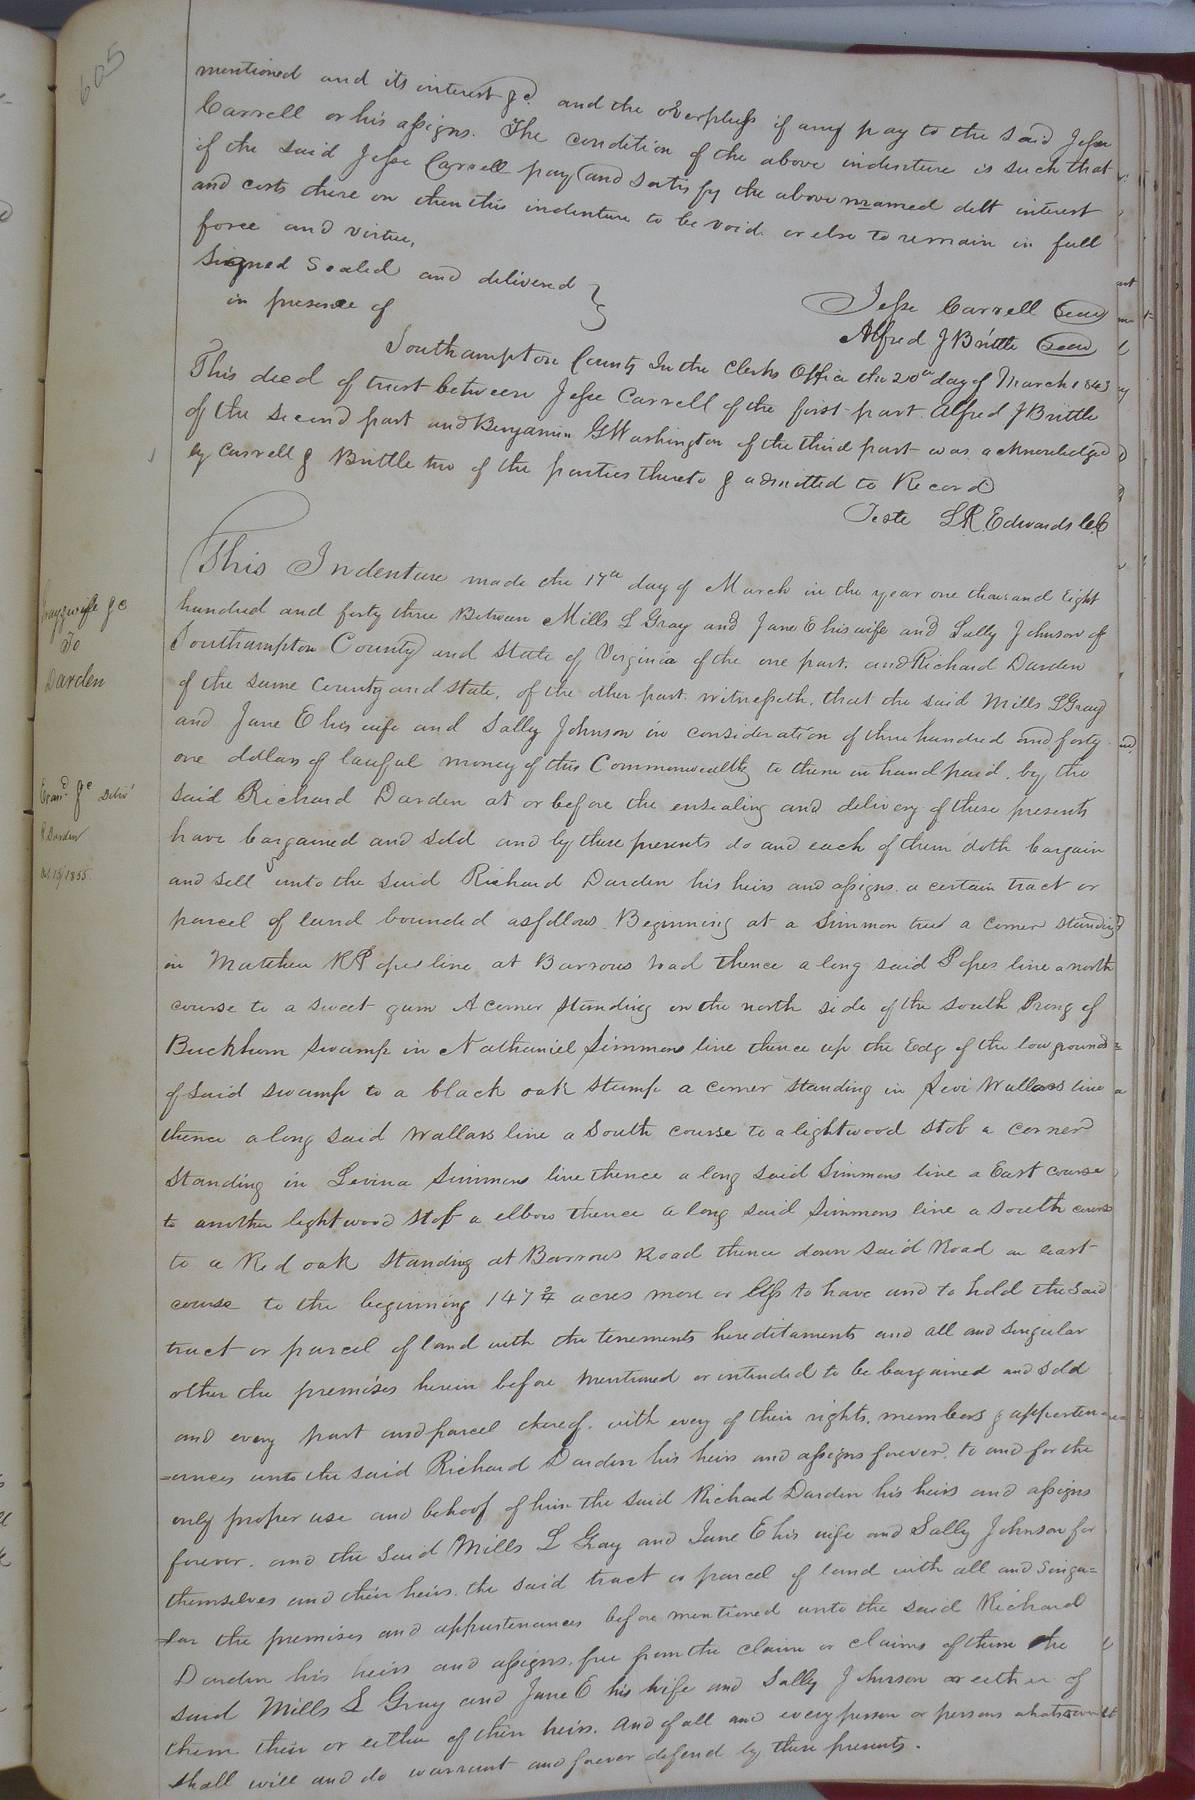 605
mentioned and its interest &c. and the overpluss if any pay to the said Jesse
Carrell or his assigns. The condition of the above indenture is such that
if the said Jesse Carrell pay and satisfy the above named debt interest
and costs there on then this indenture to be void or else to remain in full
force and virtue,
Signed Sealed and delivered
in presence of
Jesse Carrell Seal
Alfred J Brittle Seal
Southampton County In the Clerks Office the 20th day of March 1843
This deed of trust between Jesse Carrell of the first part Alfred J Brittle
of the second part and Benjamin G Washington of the third part was acknowledged
by Carrell & Brittle two of the parties thereto & admitted to Record
Teste L.R. Edwards CC
Gray & wife &c
To
Darden
Examd. &c Delivd
R Darden
15/1855
This Indenture made the 17th day of March in the year one thousand Eight
hundred and forty three Between Mills L Gray and Jane E his wife and Sally Johnson of
Southampton County and State of Virginia of the one part. and Richard Darden
of the same County and State, of the other part. witnesseth, that the said Mills L Gray
and Jane E his wife and Sally Johnson in consideration of three hundred and forty
one dollars of lawful money of this Commonwealth to them in hand paid, by the
said Richard Darden at or before the ensealing and delivery of these presents
have bargained and sold and by these presents do and each of them doth bargain
and sell unto the said Richard Darden his heirs and assigns a certain tract or
parcel of land bounded as follows. Beginning at a Simmon tree a corner standing
in Matthew R Popes line at Barrows road thence a long said Popes line a north
course to a sweet gum A corner standing on the north side of the south Prong of
Buckhorn Swamp in Nathaniel Simmons line thence up the Edg of the low grounds
of said swamp to a black oak stump a corner standing in Levi Wallars line
thence a long said Wallars line a South course to a lightwood stob a corner
standing in Levina Simmons line thence a long said Simmons line a East course
to another lightwood stob a elbow thence a long said Simmons line a south course
to a Red oak standing at Barrows Road thence down said Road an east
course to the beginning 147 3/4 acres more or less to have and to hold the said
tract or parcel of land with the tenements hereditaments and all and singular
other the premises herein before mentioned or intended to be bargained and sold
and every part and parcel thereof. with every of their rights, members & apperten
=ances unto the said Richard Darden his heirs and assigns forever, to and for the
only proper use and behoof of him the said Richard Darden his heirs and assigns
forever. and the said Mills L Gray and Jane E his wife and Sally Johnson for
themselves and their heirs. the said tract or parcel of land with all and singu=
lar the premises and appurtenances before mentioned unto the said Richard
Darden his heirs and assigns. free from the claim or claims of them the
said Mills L Gray and Jane E his wife and Sally Johnson or either of
them their or either of their heirs. and of all and every person or persons whatsoever
shall will and do warrant and forever defend by these presents.